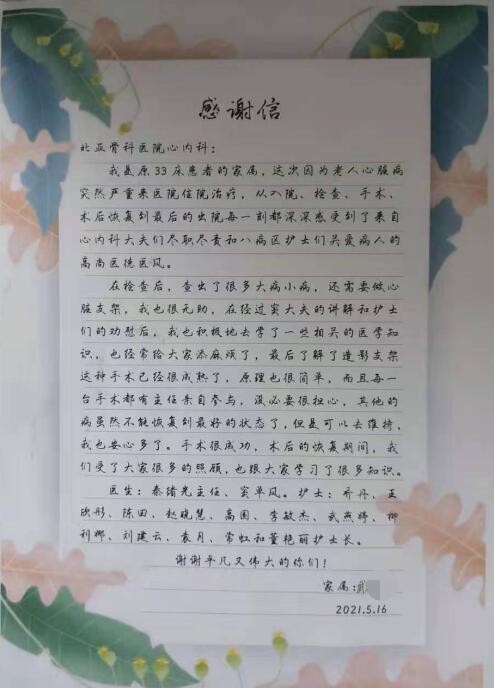 感谢信
北亚骨科医院心内科：
我是原33床患者的家属，这次因为老人心脏病
突然严重来医院住院治疗，从入院、检查、手术、
术后恢复到最后的出院每一刻都深深感受到了来自
心内科大夫们尽职尽责和八病区护士们关爱病人的
高尚医德医风。
在检查后，查出了很多大病小病，还需要做心
脏支架，我也很无助，在经过窦大夫的讲解和护士
们的劝慰后，我也积极地去学了一些相关的医学知
识，也经常给大家添麻烦了，最后了解了造影支架
这种手术已经很成熟了，原理也很简单，而且每一
台手术都有主任亲自参与，没必要很担心，其他的
病虽然不能恢复到最好的状态了，但是可以去维持，
我也安心多了。手术很成功，术后的恢复期间，我
们受了大家很多的照顾，也跟大家学习了很多知识。
医生：秦绪光主任、窦单风。护士：乔丹、王
欣彤、陈田、赵晓慧、高园、李敏杰、武燕婷、柳
利娜、刘建云、袁月、常虹和董艳丽护士长。
谢谢平凡又伟大的你们！
家属：
2021.5.16